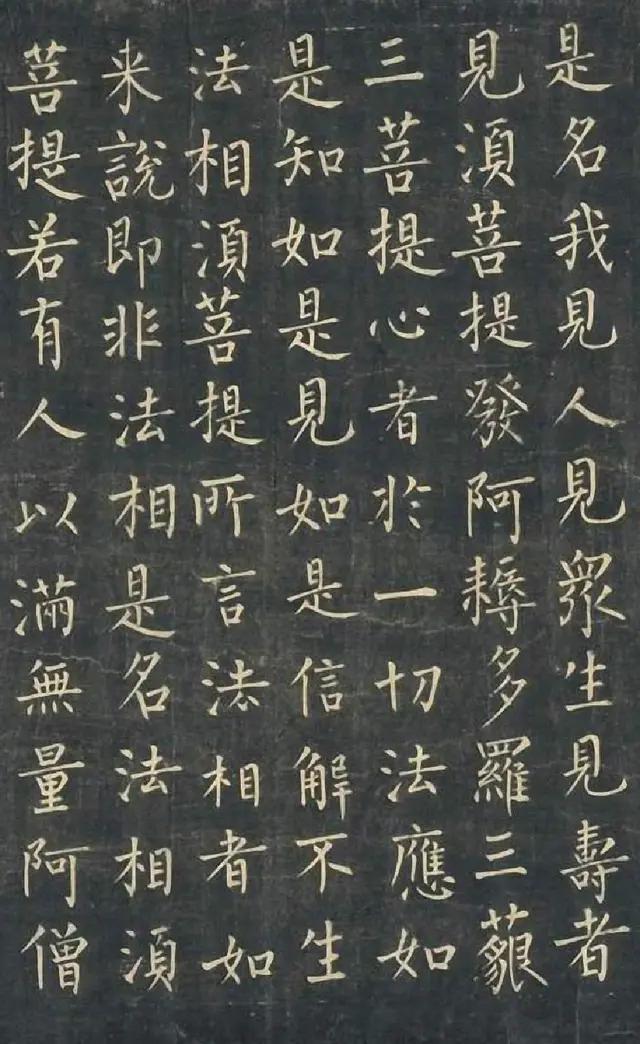 是名我見人見眾生見壽者
見湏菩提發阿耨多羅三藐
三菩提心者於一切法應如
是知如是見如是信解不生
法相湏菩提所言法相者如
来說即非法相是名法相湏
菩提若有人以滿無量阿僧